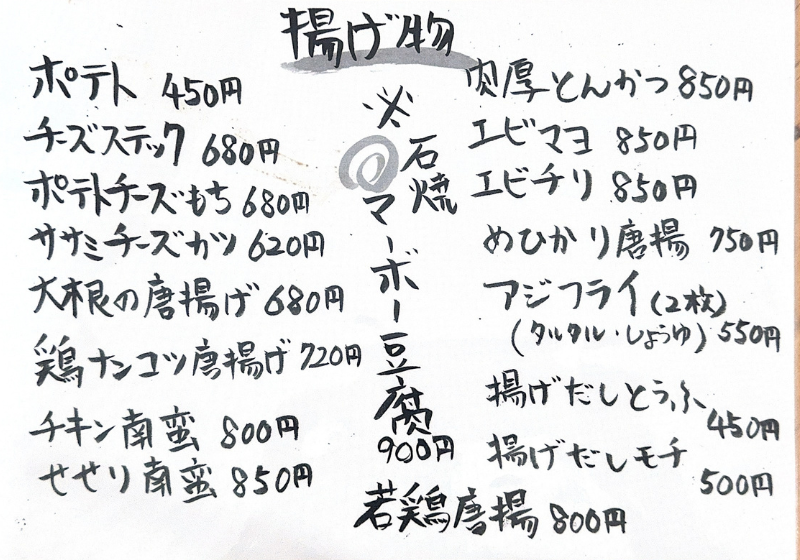 揚げ物
ポテト 450円
チーズスティック 680円
ポテトチーズもち 680円
ササミチーズカツ 620円
大根の唐揚げ 680円
鶏ナンコツ唐揚げ 720円
チキン南蛮 800円
せせり南蛮 850円
※石焼
マーボー豆腐
900円
肉厚とんかつ 850円
エビマヨ 850円
エビチリ 850円
めひかり唐揚 750円
アジフライ(2枚)
(タルタル・しょうゆ) 550円
揚げだしとうふ
450円
揚げだしモチ
500円
若鶏唐揚 800円